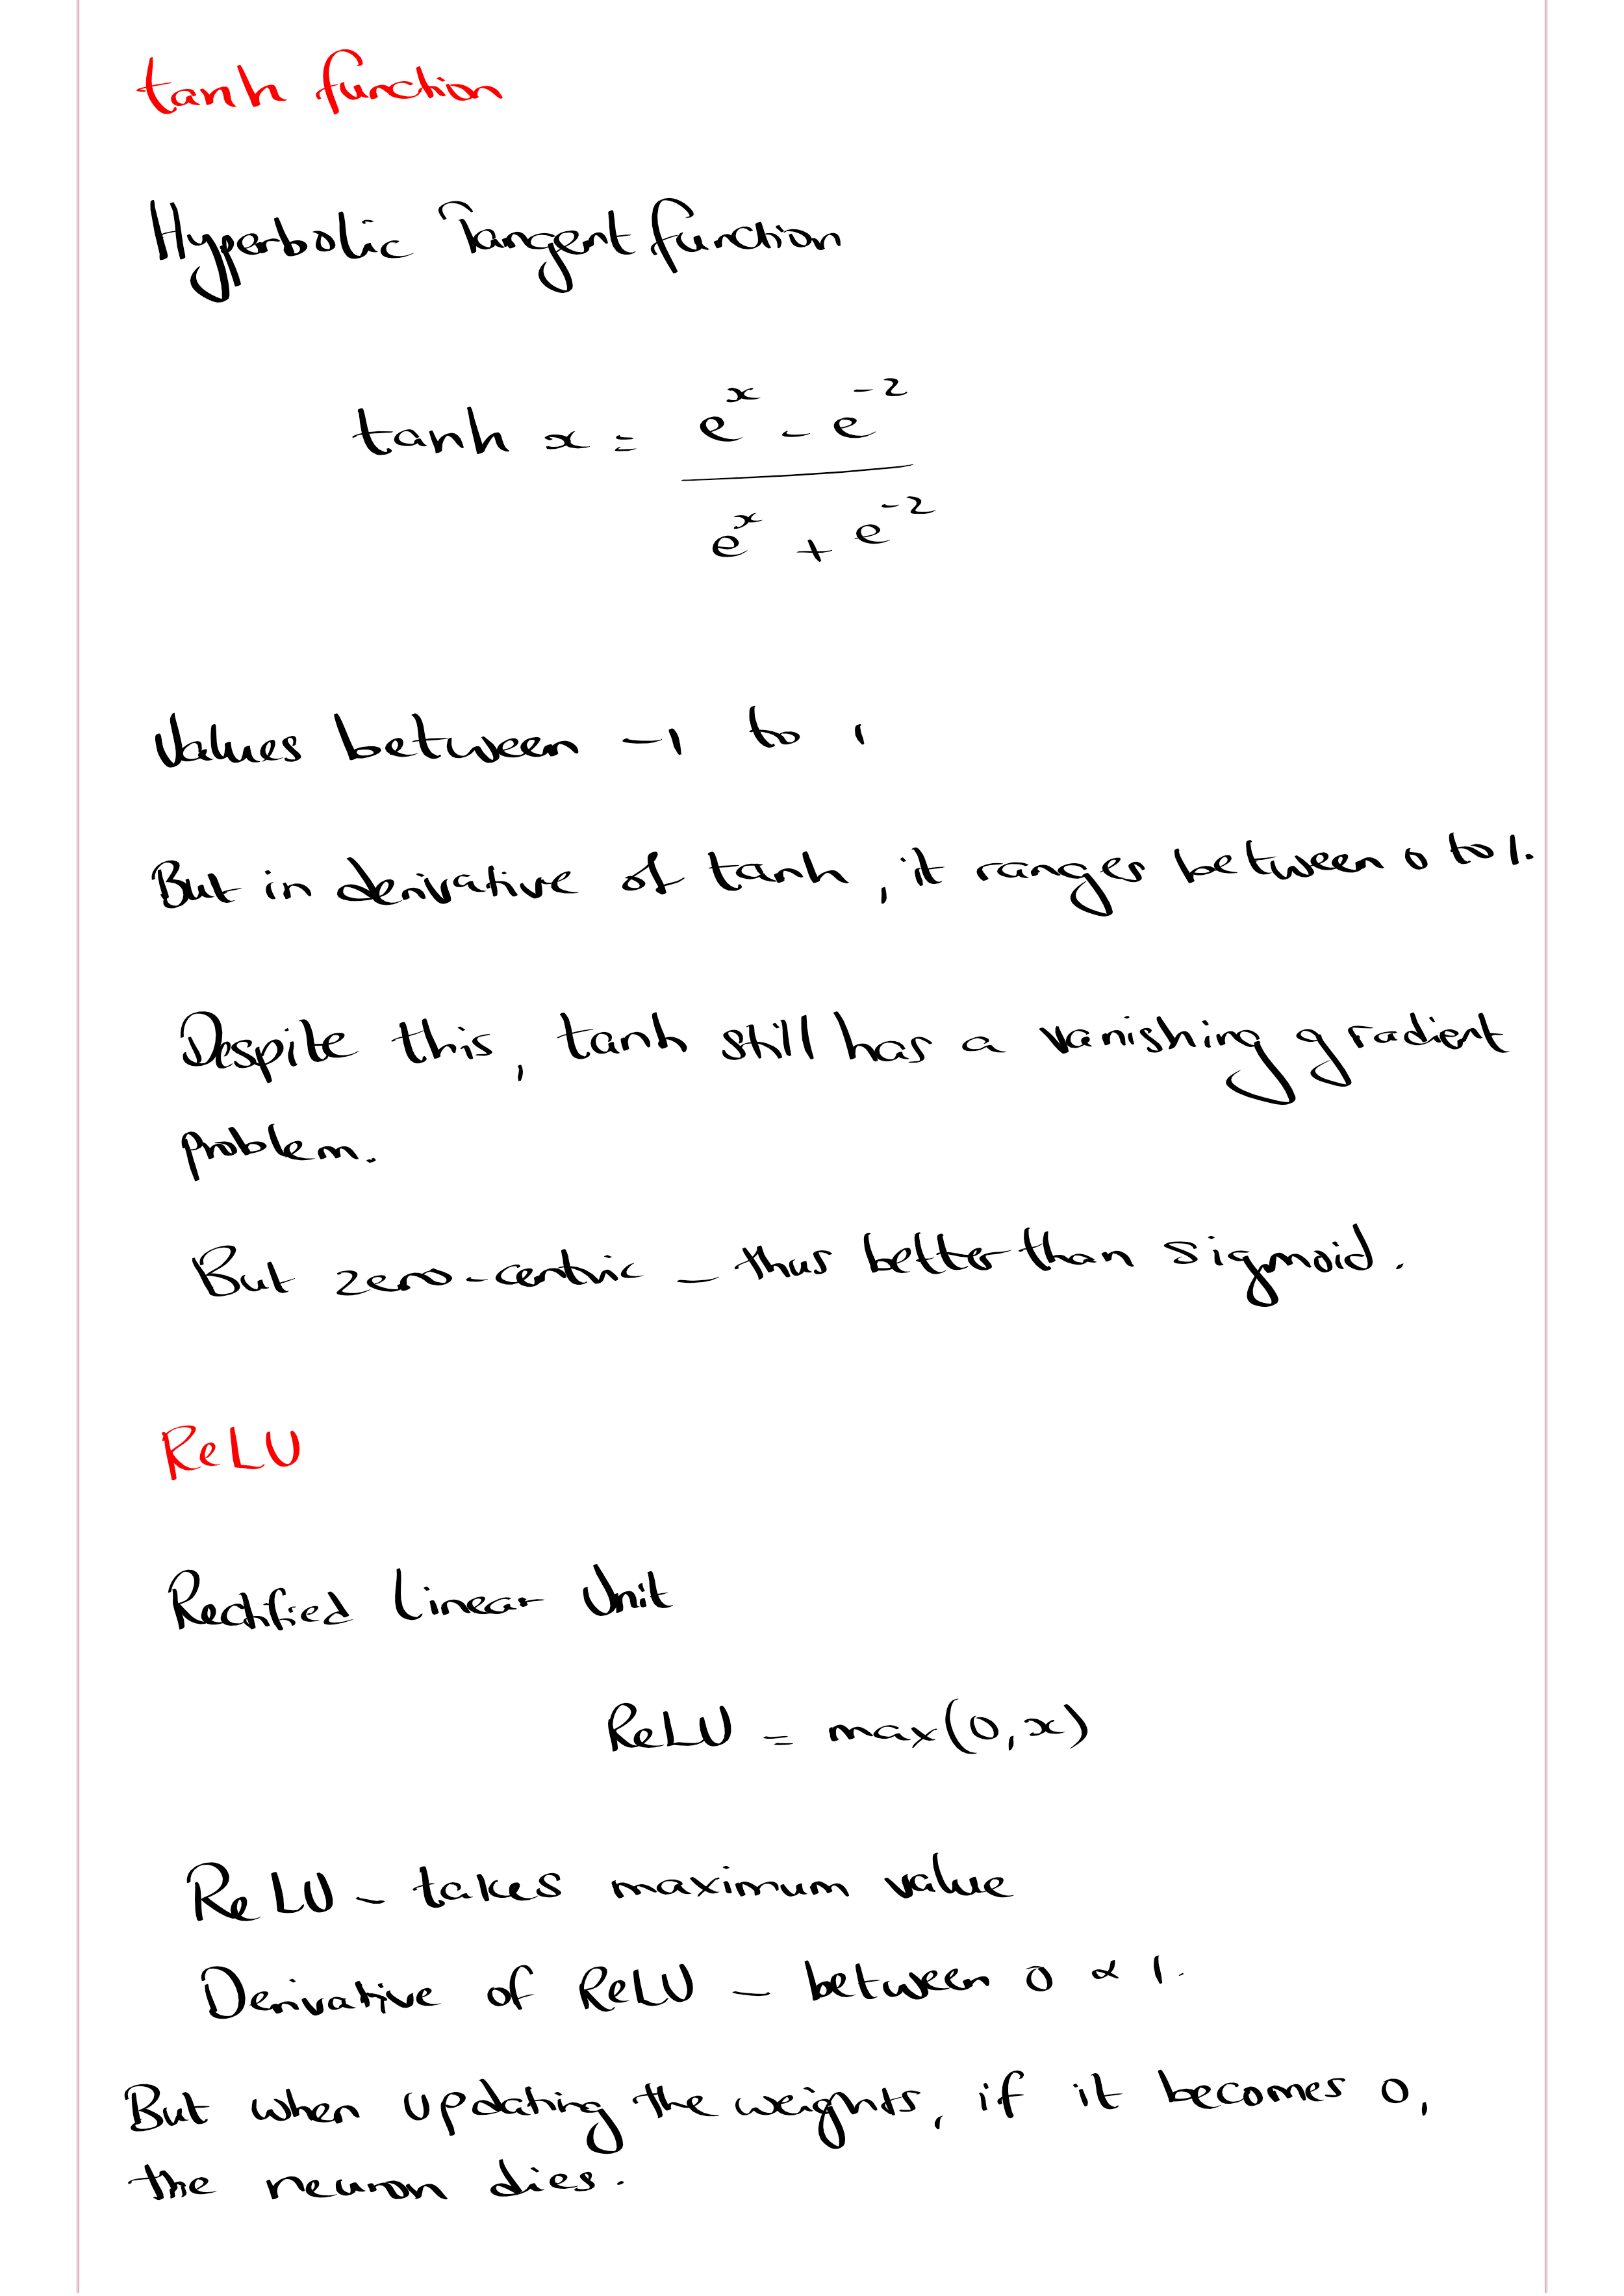 tanh function
Hyperbolic Tangent function
tanh x = e^x - e^-2 / e^x + e^-2
Values between -1 to 1
But in derivative of tanh, it ranges between 0 to 1.
Despite this, tanh still has a vanishing gradient
problem.
But zero-centric - thus better than sigmoid.
ReLU
Rectified Linear Unit
ReLU = max(0, x)
ReLU - takes maximum value
Derivative of ReLU - between 0 & 1.
But when updating the weights, if it becomes 0,
the neuron dies.